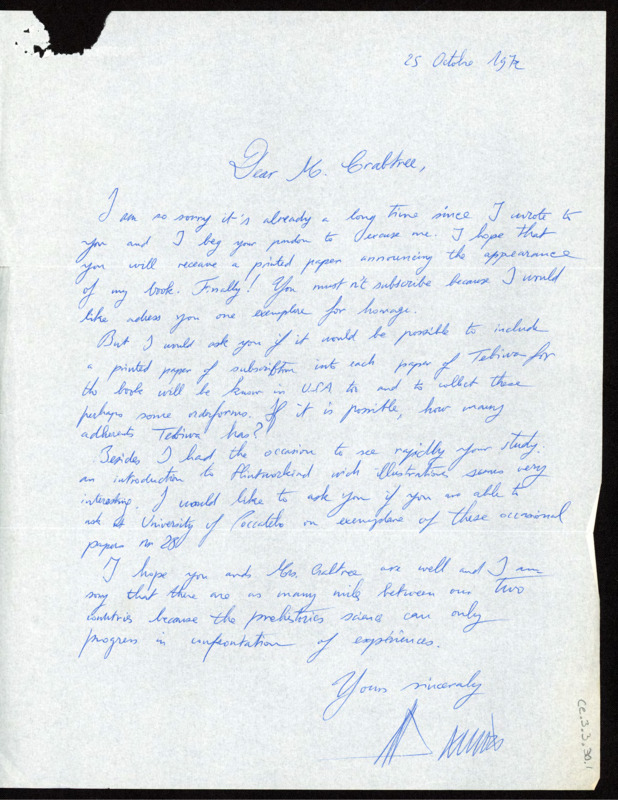 25 Octobre 1972
Dear M. Crabtree,
I am so sorry it's already a long time since I wrote to
you and I beg your pardon to excuse me. I hope that
you will receive a printed paper announcing the appearance
of my book. Finally! You must n't subscribe because I would
like adress you one exemplare for homage.
But I would ask you if it would be possible to include
a printed paper of subscription into each paper of Tebiwa for
the book will be know in USA too and to collect there
perhaps some orderforms. If it is possible, how many
adherents Tebiwa has?
Besides I had the occasion to see rapidly your study.
an introduction to flintworkind wich illustrations seems very
interesting. I would like to ask you if you are able to
ask to University of Poccatelo an exemplare of these occasional
papers no 28?
I hope you and Mrs. Crabtree are well and I am
sory that there are as many mile between our two
countries because the prehistories science can only
progress in confrontation of expériences.
Yours sinceraly
cc.3.3.30.1